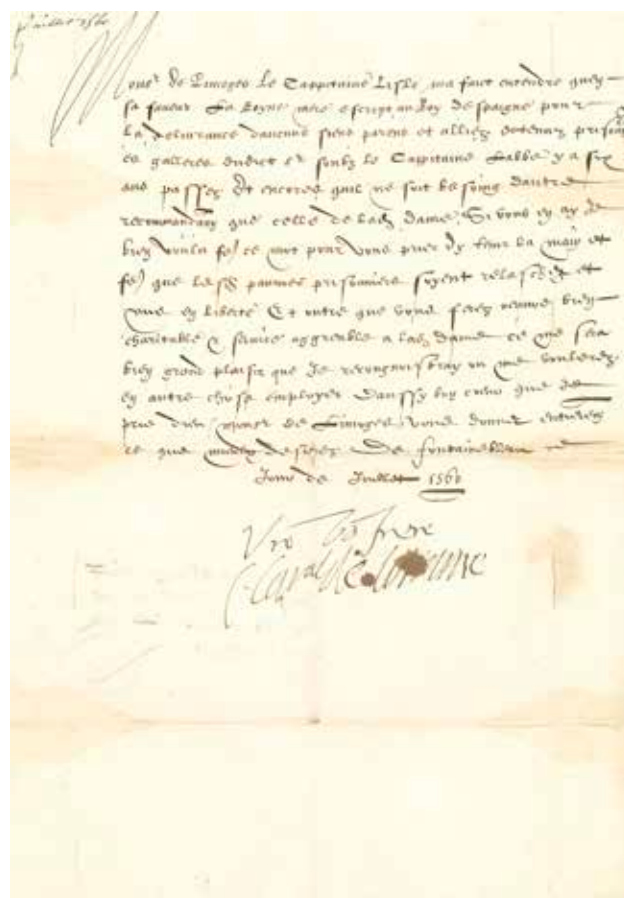 juillet 1560
Monsr de Limoges Le Cappitaine Lisle ma faict entendre quen
sa faveur La Royne mere escript au Roy despaigne pour
La delivrance daucuns siens parens et alliez detenuz
es galleres et soubz le Cappitaine Labbe y a six
ans passez Et encores quil ne soit besoing dautre
recommandaon que celle de lad dame Si vous ay Je
bien voulu fe ce mot pour vous prier dy tenir la main et
fe que lesd pauvres prisonniers soyent relaschez et
mis en liberté Et outre que vous ferez oeuvre bien
charitable & service aggreable a lad dame ce me sera
bien grand plaisir que Je recongnoistray ou me vouldrez
en autre chose employer Daussy bon cueur que Je
prie dieu monsr de Limoges vous donner
ce que mieulx desirez De fontainebleau
Jour de Juillet 1560
Vre bon frere
C. Caral de Lorraine